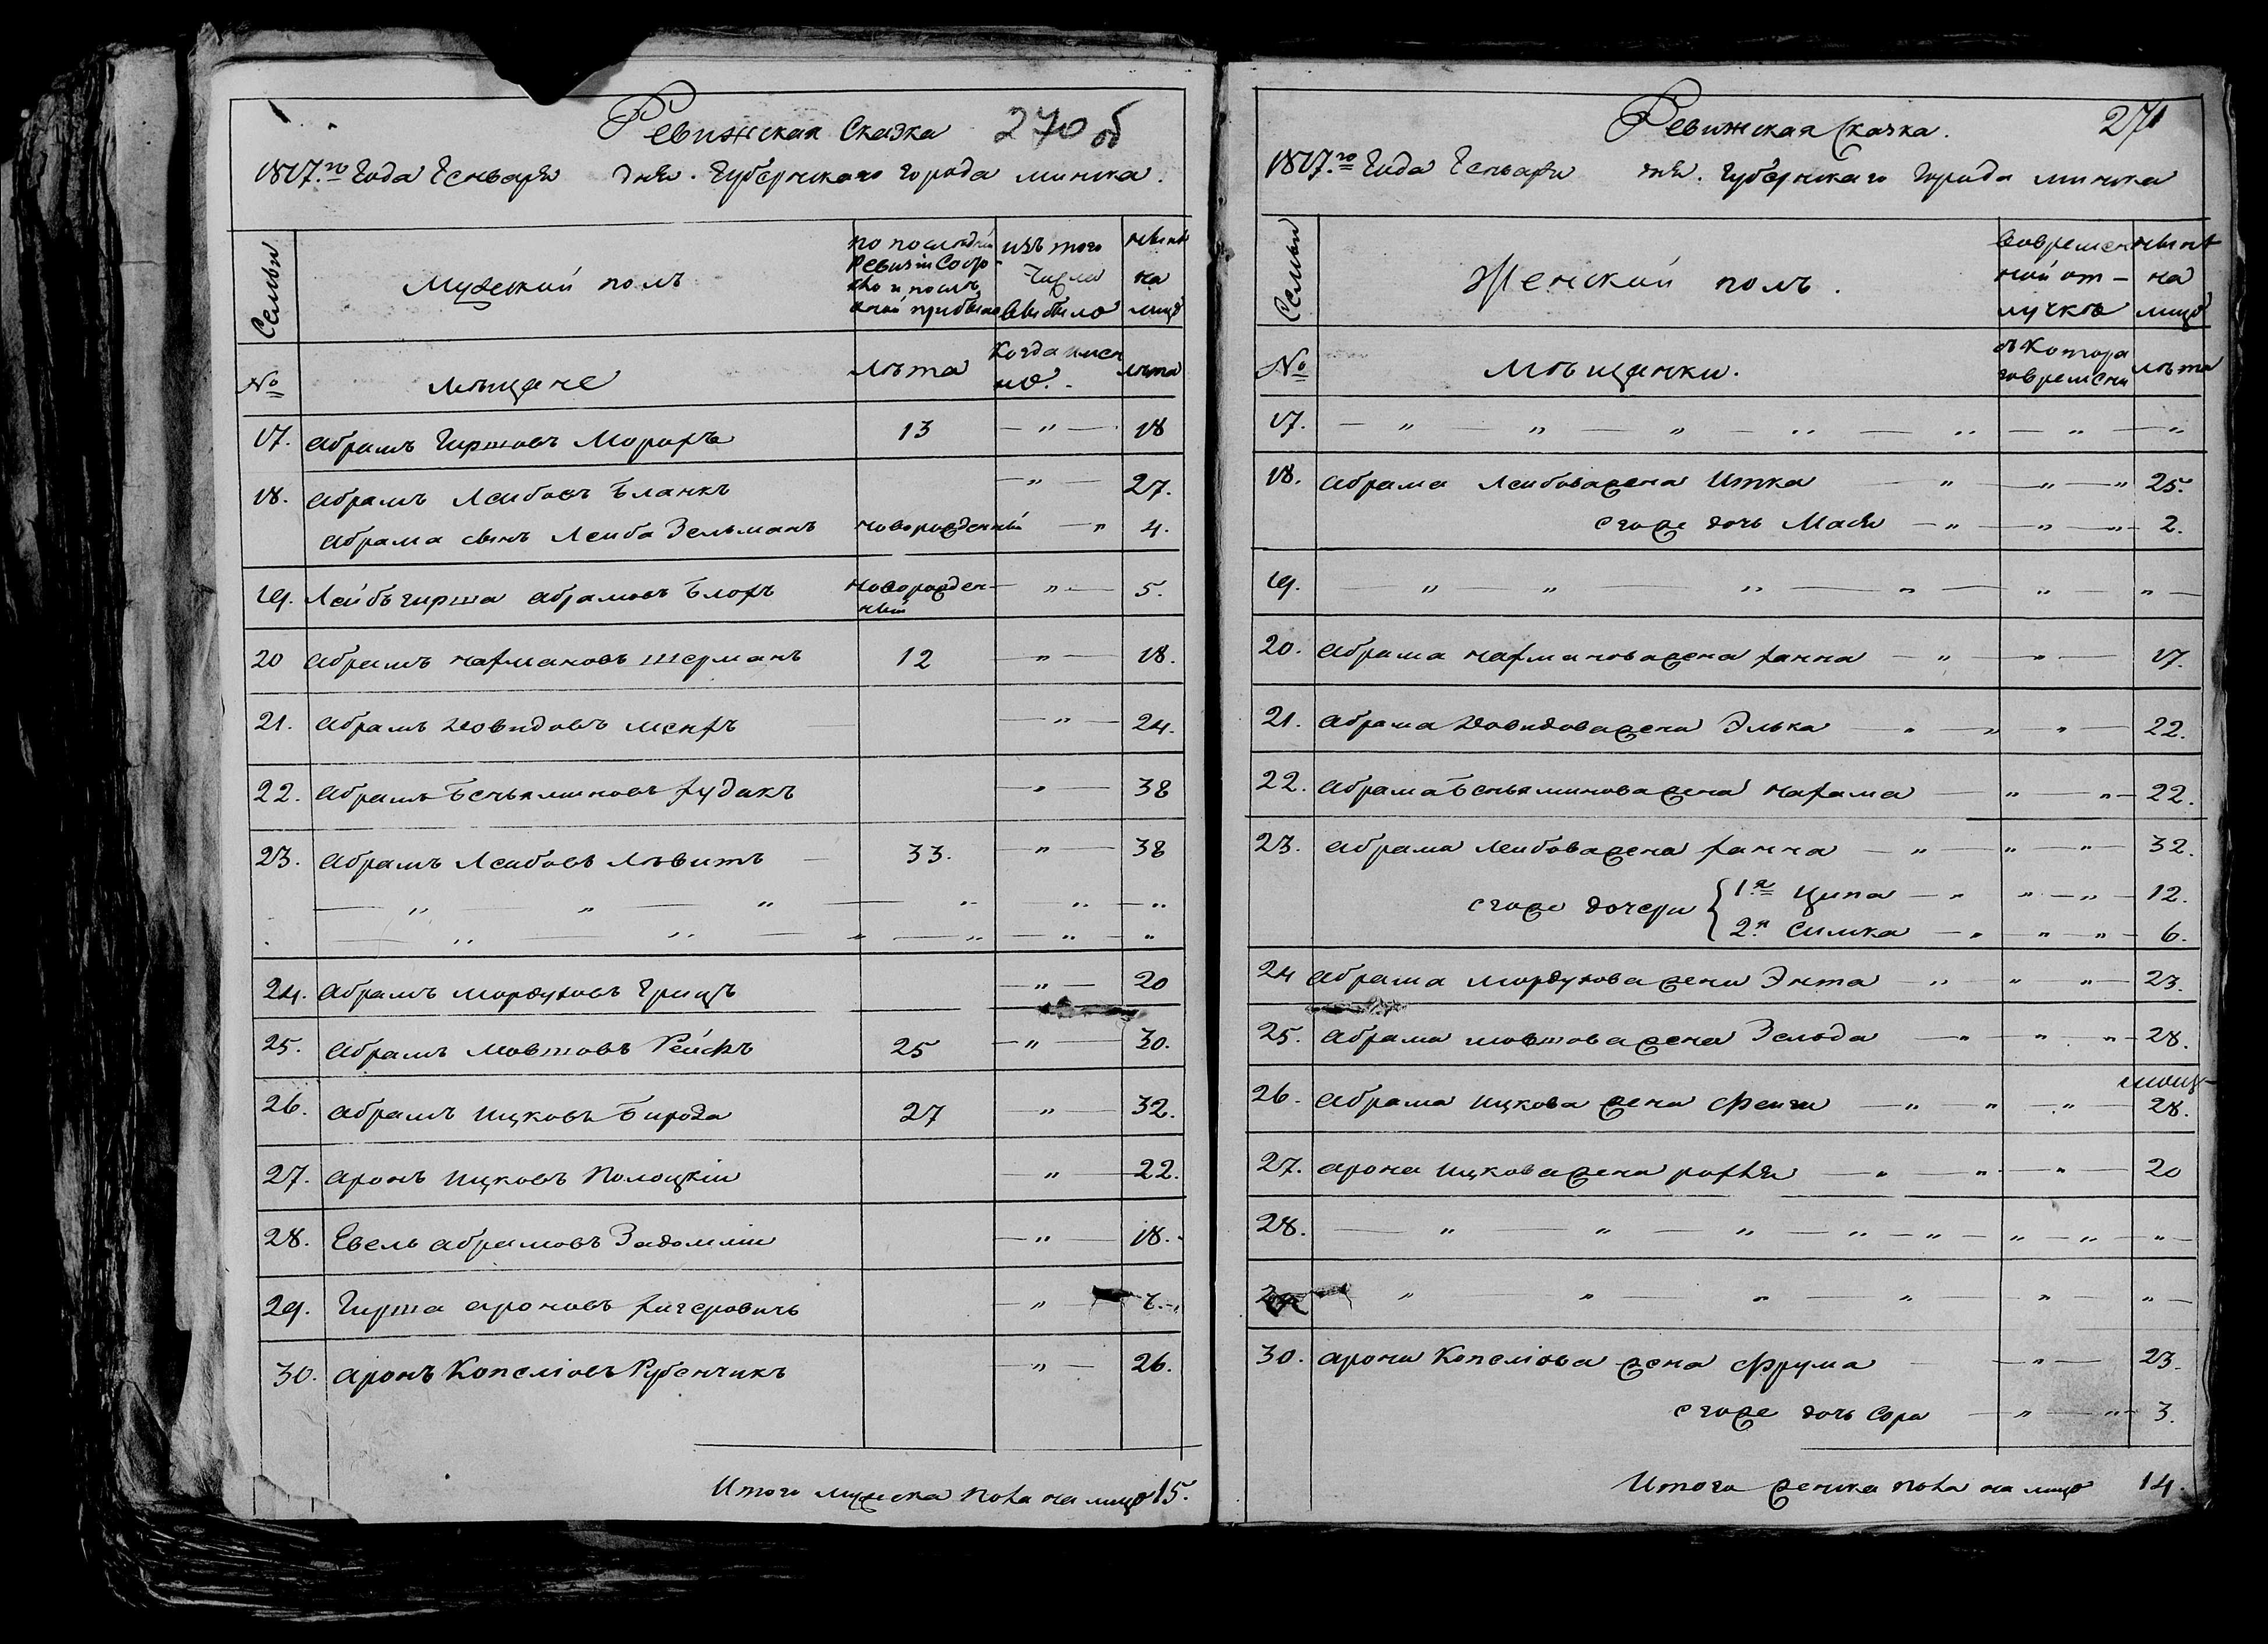 Ревижская Сказка 270 об
1817.го Года Генваря дня. Губернскаго города минска.
Семьи
Мужеский полъ
по последней Ревизіи Состояло и после оной прибыло
изъ того числа выбыло
ныне на лицо
№
мещане
лета
Когда именно.
лета
17. Абрамъ Гиршовъ Морохъ 13 — „ — 18
18. Абрамъ Леибовъ Бланкъ — „ — 27.
Абрама сынъ Леиба Зельманъ новорожденный — „ 4.
19. Лейбъ гирша абрамовъ Блохъ новорожденный — „ — 5.
20 Абрамъ нахмановъ шерманъ 12 — „ — 18.
21. Абрамъ Довидовъ менхъ — „ — 24.
22. Абрамъ Беньяминовъ худакъ — „ — 38
23. Абрамъ Леибовъ Левитъ — 33. — „ — 38
— „ — „ — „ — „ „ — „
— „ — „ — „ — „ — „ — „
24. Абрамъ мордуховъ Грицъ — „ — 20
25. Абрамъ Мовшовъ Рейфъ 25 — „ — 30.
26. Абрамъ ицковъ Бирода 27 „ — 32.
27. аронъ ицковъ Полоцкіи — „ — 22.
28. Евель абрамовъ Задомліи — „ — 18.
29. Гирша ароновъ хигеровичь — „
30. аронъ Копеліовъ Рубенчикъ — „ — 26.
Итого мужска пола на лицо 15.
Ревижская Сказка. 271
1817.го Года Генваря дня. Губернскаго Города минска
Семьи
Женский полъ.
Вовременной отлучке
ныне на лицо
№
мещанки.
съ Котораго времени
лета
17. — „ — „ — „ — „ — „ — „ — „
18. Абрама Леибова жена Итка — „ — „ — „ 25.
єгоже дочь Мася — „ — „ — „ 2.
19. — „ — „ — „ — „ — „ — „ —
20. Абрама нахманова жена ханна — „ — „ — 17.
21. Абрама Довидова жена Элька — „ — „ „ — 22.
22. Абрама Беньяминова жена нахама — „ — „ — 22.
23. Абрама леибова жена ханна — „ — „ — „ — 32.
єгоже дочери { 1я Ципа — „ „ — „ — 12.
2я Симка — „ — „ — „ — 6.
24 Абрама мордухова жена Энта — „ — „ „ — 23.
25. Абрама мовшова жена Зелда — „ — „ „ — 28.
26. Абрама ицкова жена фейга — „ — „ — „ — 28.
27. арона ицкова жена рохля — „ — „ — „ — 20
28. — „ — „ — „ — „ — „ — „ — „ — „ —
— „ — „ — „ — „ — „ — „ —
30. арона Копеліова жена фрума — „ — 23.
єгоже дочь Сора — „ — „ — 3.
Итого женска пола на лицо 14.